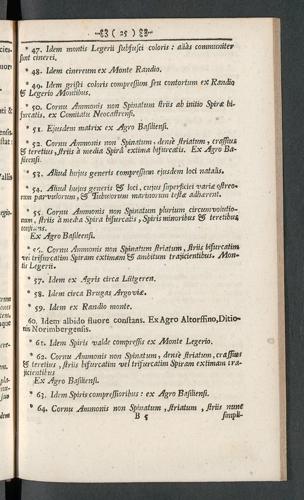 ( 25 )
* 47. Idem montis Legerii subfusci coloris : aliàs communiter
sunt cinerei.
* 48. Idem cinereum ex Monte Randio.
* 49. Idem grisei coloris compressum seu contortum ex Randio
& Legerio Montibus.
* 50. Cornu Ammonis non Spinatum striis ab initio Spiræ bi-
furcatis. ex Comitatu Neocastrensi.
* 51. Ejusdem matrix ex Agro Basiliensi.
* 52. Cornu Ammonis non Spinatum, densè striatum, crassius
& teretius, striis à media Spirâ extima bifurcatis. Ex Agro Ba-
siliensi.
* 53. Aliud hujus generis compressum ejusdem loci natalis.
* 54. Aliud hujus generis & loci, cujus superficiei variæ ostreo-
rum parvulorum, & Tubulorum marinorum testæ adhærent.
* 55. Cornu Ammonis non Spinatum plurium circumvolutio-
num, striis à media Spira bifurcatis, Spiris minoribus & teretibus
Ex Agro Basileensi.
Cornu Ammonis non Spinatum striatum, striis bifurcatim
vel trifurcatim Spiram extimam & ambitum trajicientibus. Mon-
tis Legerii.
* 57. Idem ex Agris circa Lütgeren.
* 58. Idem circa Brugas Argoviæ.
* 59. Idem ex Randio monte.
60. Idem albido fluore constans. Ex Agro Altorffino, Ditio-
nis Norimbergensis.
* 61. Idem Spiris valde compressis ex Monte Legerio.
* 62. Cornu Ammonis non Spinatum, densè striatum, crassius
& teretius, striis bifurcatim vel trifurcatim Spiram extimam tra-
jicientibus
Ex Agro Basiliensi.
* 63. Idem Spiris compressioribus : ex Agro Basiliensi.
* 64. Cornu Ammonis non Spinatum, striatum, striis nunc
B 5 simpli-